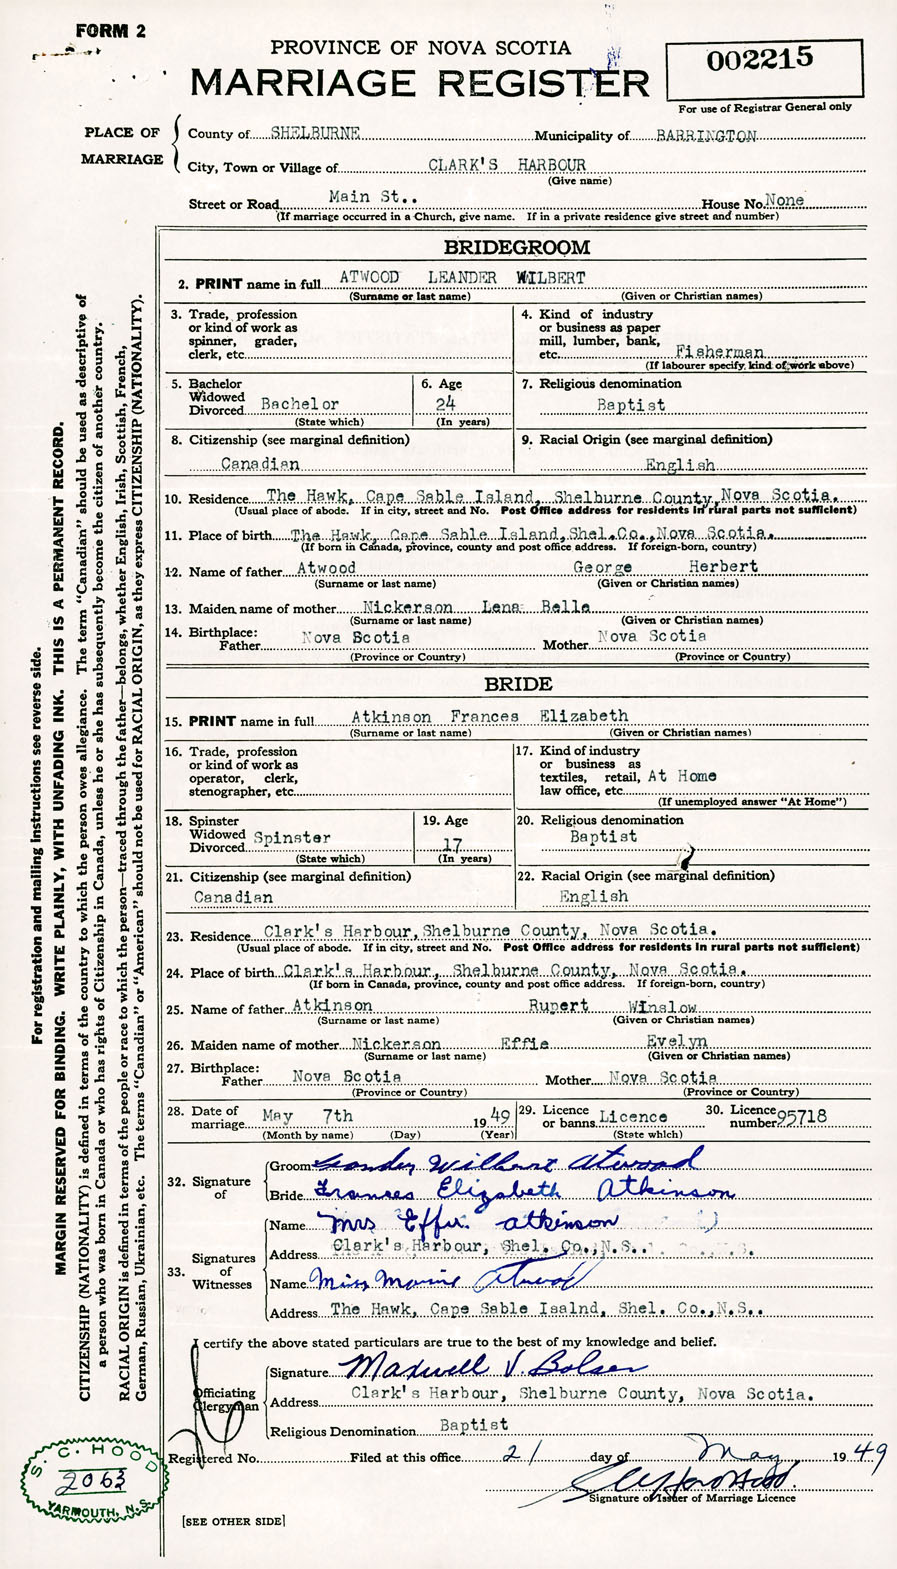 FORM 2
PROVINCE OF NOVA SCOTIA
MARRIAGE REGISTER
002215
For use of Registrar General only
PLACE OF MARRIAGE
County of SHELBURNE Municipality of BARRINGTON
City, Town or Village of CLARK'S HARBOUR
(Give name)
Street or Road Main St.. House No. None
(If marriage occurred in a Church, give name. If in a private residence give street and number)
BRIDEGROOM
2. PRINT name in full ATWOOD LEANDER WILBERT
(Surname or last name) (Given or Christian names)
3. Trade, profession
or kind of work as
spinner, grader,
clerk, etc.
4. Kind of industry
or business as paper
mill, lumber, bank,
etc. Fisherman
(If labourer specify kind of work above)
5. Bachelor
Widowed
Divorced Bachelor
(State which)
6. Age
24
(In years)
7. Religious denomination
Baptist
8. Citizenship (see marginal definition)
Canadian
9. Racial Origin (see marginal definition)
English
10. Residence The Hawk, Cape Sable Island, Shelburne County, Nova Scotia.
(Usual place of abode. If in city, street and No. Post Office address for residents in rural parts not sufficient)
11. Place of birth The Hawk, Cape Sable Island, Shel.Co., Nova Scotia.
(If born in Canada, province, county and post office address. If foreign-born, country)
12. Name of father Atwood George Herbert
(Surname or last name) (Given or Christian names)
13. Maiden name of mother Nickerson Lena Belle
(Surname or last name) (Given or Christian names)
14. Birthplace:
Father Nova Scotia Mother Nova Scotia
(Province or Country) (Province or Country)
BRIDE
15. PRINT name in full Atkinson Frances Elizabeth
(Surname or last name) (Given or Christian names)
16. Trade, profession
or kind of work as
operator, clerk,
stenographer, etc.
17. Kind of industry
or business as
textiles, retail, At Home
law office, etc.
(If unemployed answer "At Home")
18. Spinster
Widowed
Divorced Spinster
(State which)
19. Age
17
(In years)
20. Religious denomination
Baptist
21. Citizenship (see marginal definition)
Canadian
22. Racial Origin (see marginal definition)
English
23. Residence Clark's Harbour, Shelburne County, Nova Scotia.
(Usual place of abode. If in city, street and No. Post Office address for residents in rural parts not sufficient)
24. Place of birth Clark's Harbour, Shelburne County, Nova Scotia.
(If born in Canada, province, county and post office address. If foreign-born, country)
25. Name of father Atkinson Rupert Winslow
(Surname or last name) (Given or Christian names)
26. Maiden name of mother Nickerson Effie Evelyn
(Surname or last name) (Given or Christian names)
27. Birthplace:
Father Nova Scotia Mother Nova Scotia
(Province or Country) (Province or Country)
28. Date of
marriage May 7th 1949
(Month by name) (Day) (Year)
29. Licence
or banns Licence
(State which)
30. Licence
number 95718
32. Signature of
Groom Leander Wilbert Atwood
Bride Frances Elizabeth Atkinson
33. Signatures of Witnesses
Name Mrs Effie Atkinson
Address Clark's Harbour, Shel. Co.,N.S..
Name Miss Atwood
Address The Hawk, Cape Sable Isalnd, Shel. Co.,N.S..
I certify the above stated particulars are true to the best of my knowledge and belief.
Officiating Clergyman
Signature Maxwell V. Bolser
Address Clark's Harbour, Shelburne County, Nova Scotia.
Religious Denomination Baptist
Registered No. Filed at this office 21 day of May 1949
Signature of Issuer of Marriage Licence
[SEE OTHER SIDE]
S. C. HOOD
2063
YARMOUTH, N.S.
For registration and mailing instructions see reverse side.
MARGIN RESERVED FOR BINDING. WRITE PLAINLY, WITH UNFADING INK. THIS IS A PERMANENT RECORD.
CITIZENSHIP (NATIONALITY) is defined in terms of the country to which the person owes allegiance. The term "Canadian" should be used as descriptive of
a person who was born in Canada or who has rights of Citizenship in Canada, unless he or she has subsequently become the citizen of another country.
RACIAL ORIGIN is defined in terms of the people or race to which the person—traced through the father—belongs, whether English, Irish, Scottish, French,
German, Russian, Ukrainian, etc. The terms "Canadian" or "American" should not be used for RACIAL ORIGIN, as they express CITIZENSHIP (NATIONALITY).